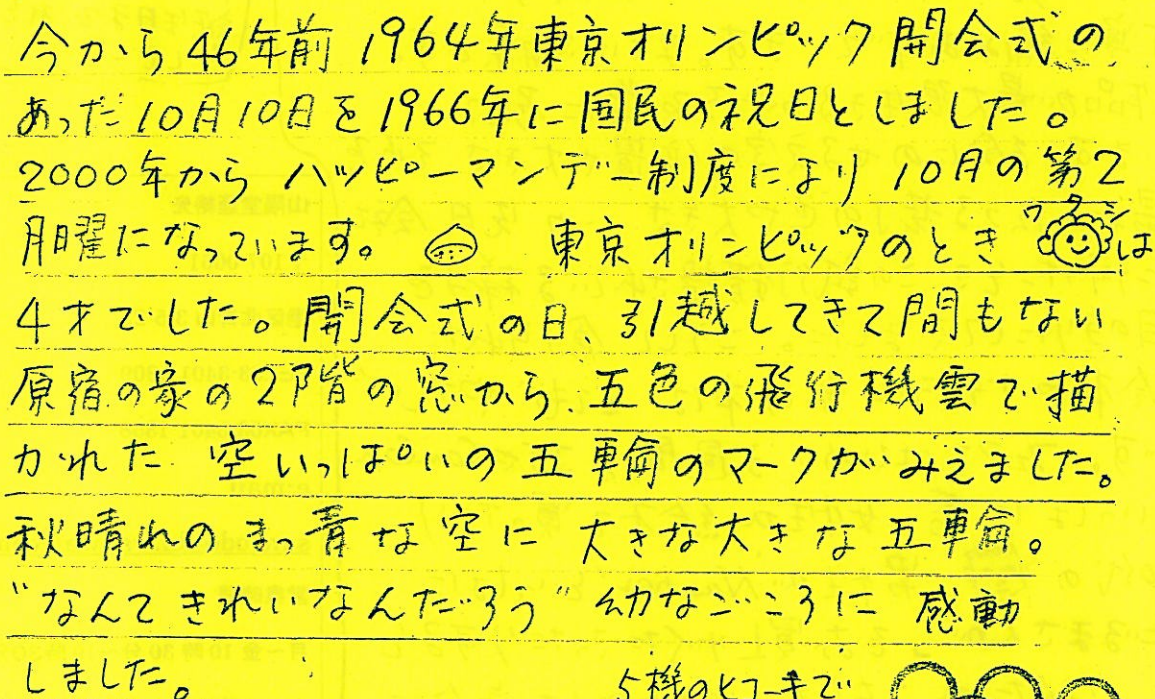 今から46年前 1964年東京オリンピック開会式の
あった10月10日を1966年に国民の祝日としました。
2000年から ハッピーマンデー制度により 10月の第2
月曜になっています。 東京オリンピックのとき ワタシ は
4才でした。開会式の日、引越してきて間もない
原宿の家の2階の窓から、五色の飛行機雲で描
かれた 空いっぱいの五輪のマークがみえました。
秋晴れのまっ青な空に 大きな大きな五輪。
"なんてきれいなんだろう" 幼なごころに 感動
しました。
5機のヒコーキで